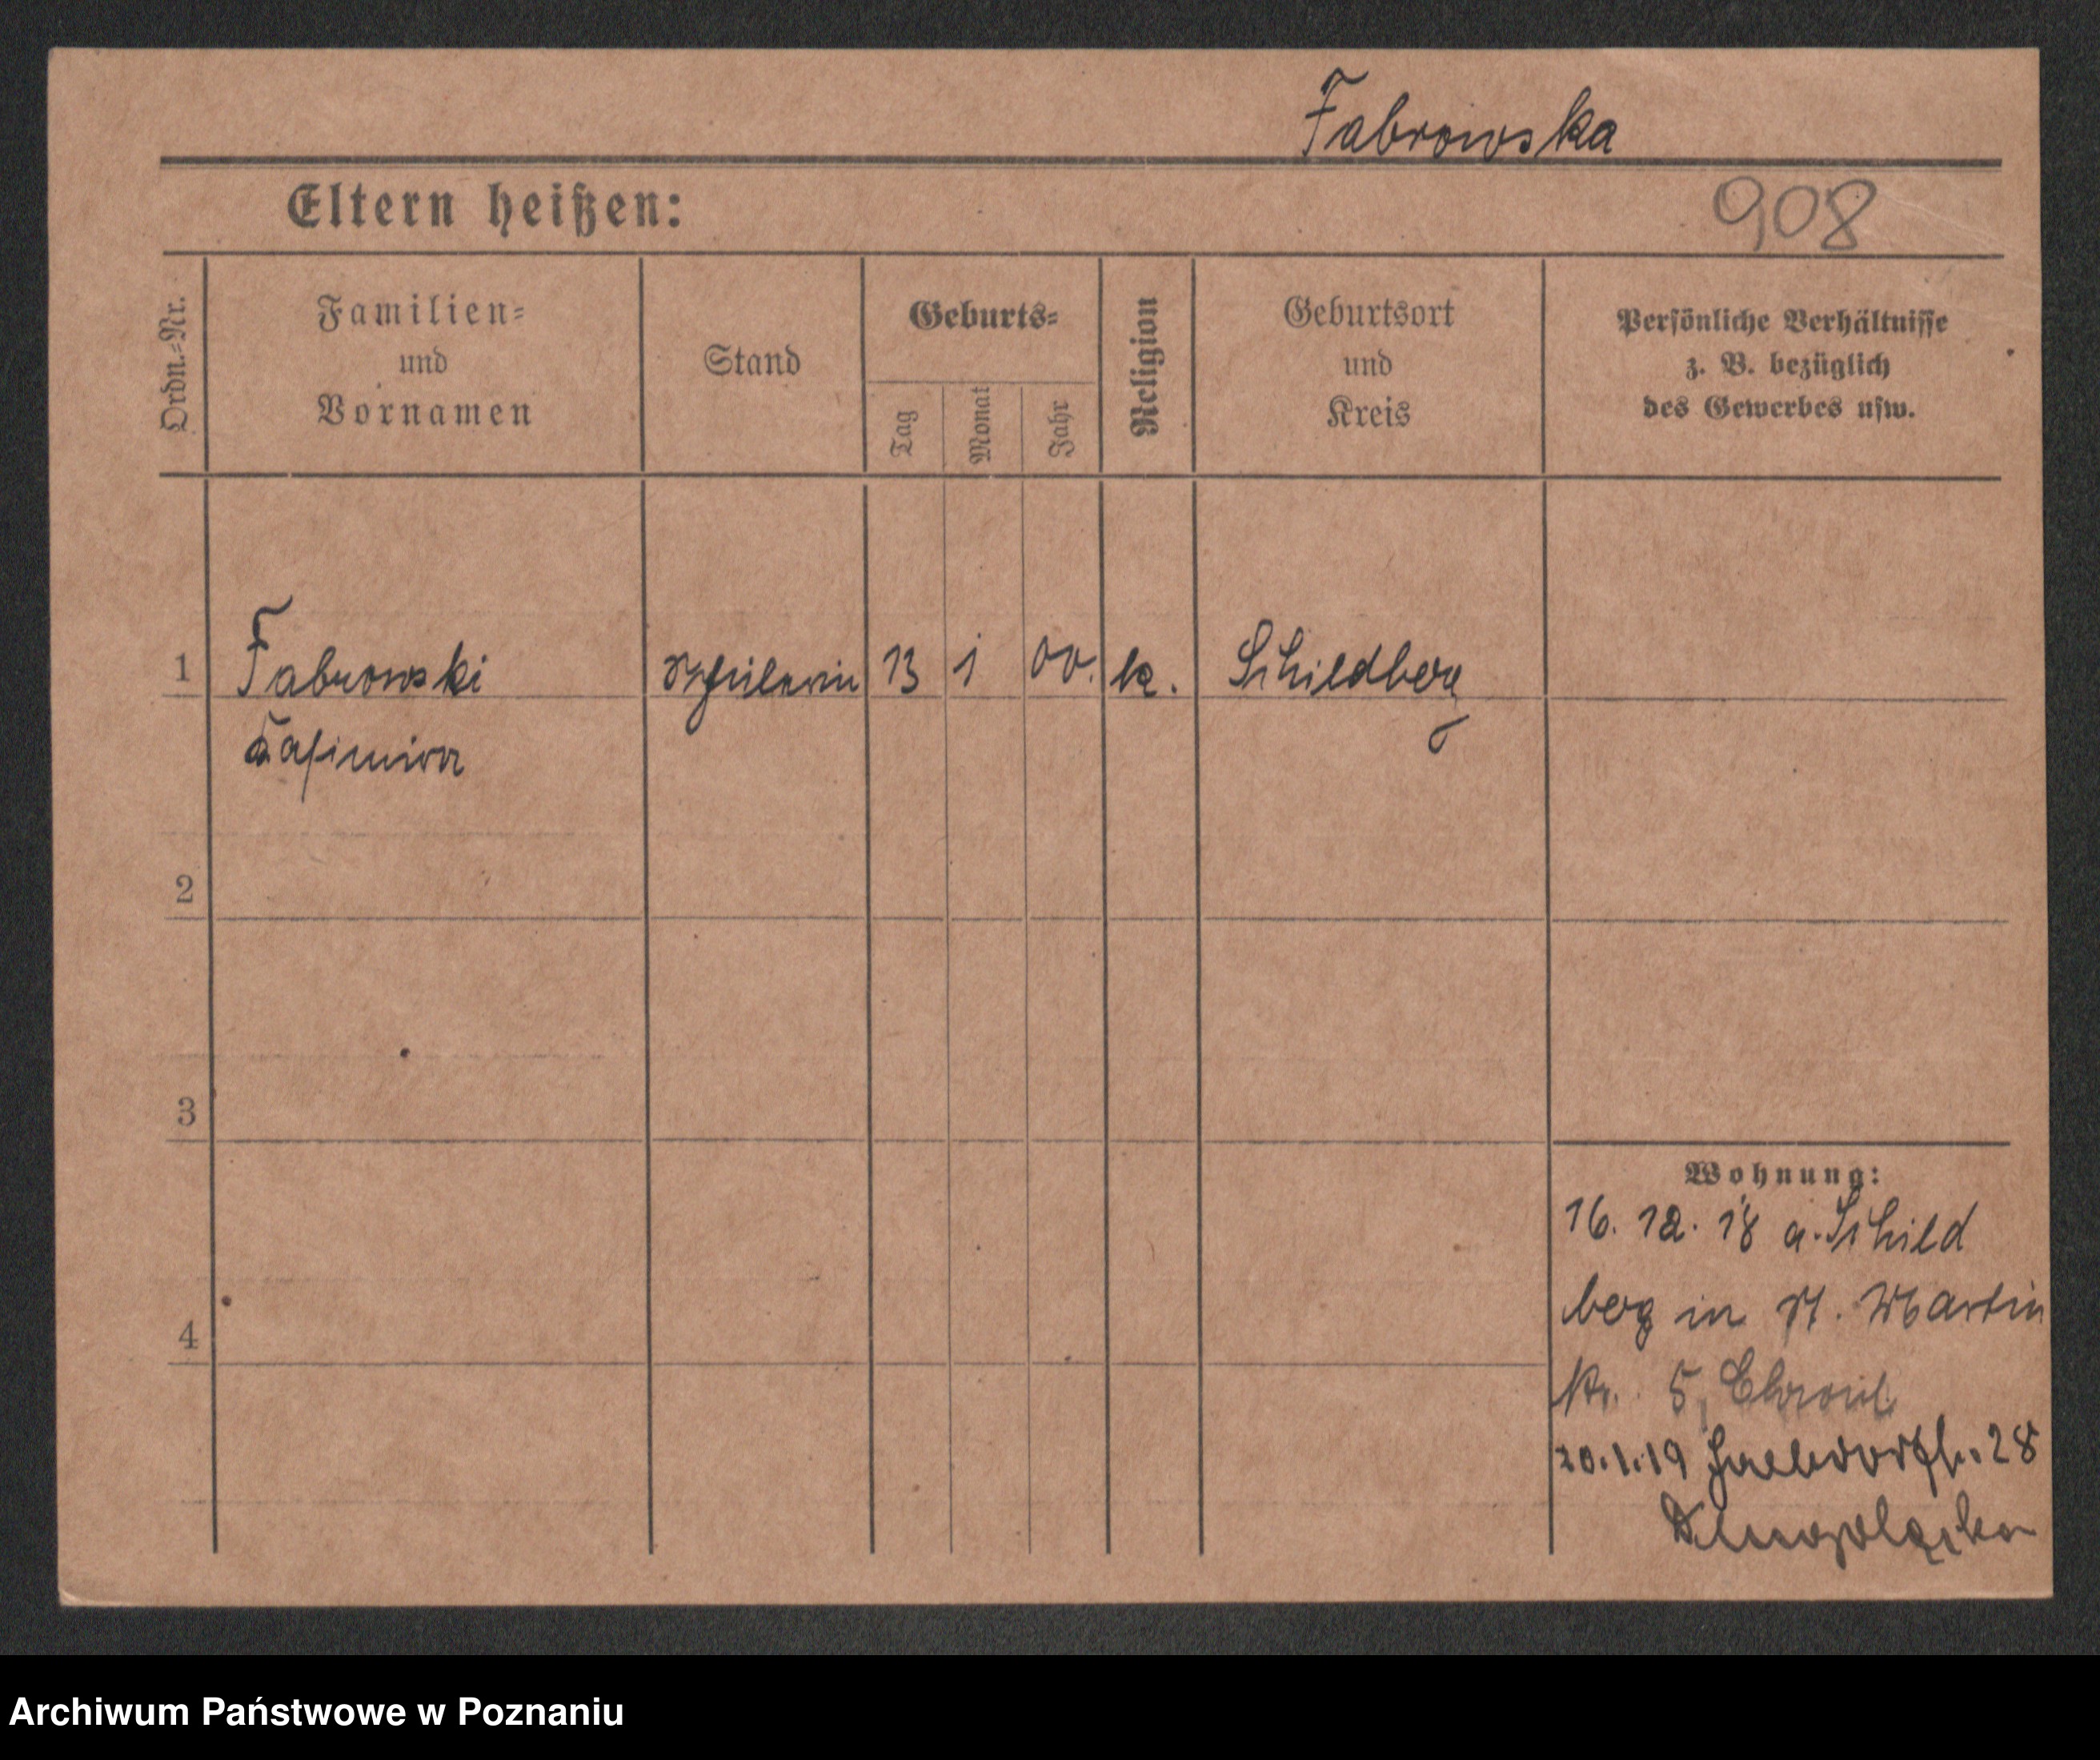 Fabrowska
Eltern heißen:
908
Ordn.-Nr.
Familien-
und
Vornamen
Stand
Geburts-
Tag
Monat
Jahr
Religion
Geburtsort
und
Kreis
Persönliche Verhältnisse
z. B. bezüglich
des Gewerbes usw.
1 Fabrowski Schülerin 13 1 00. k. Schildberg
Kasimira
2
3
4
Wohnung:
16. 12. 18 a. Schild
berg in St. Martin
Nr. 5
20.1.19 28
Archiwum Państwowe w Poznaniu